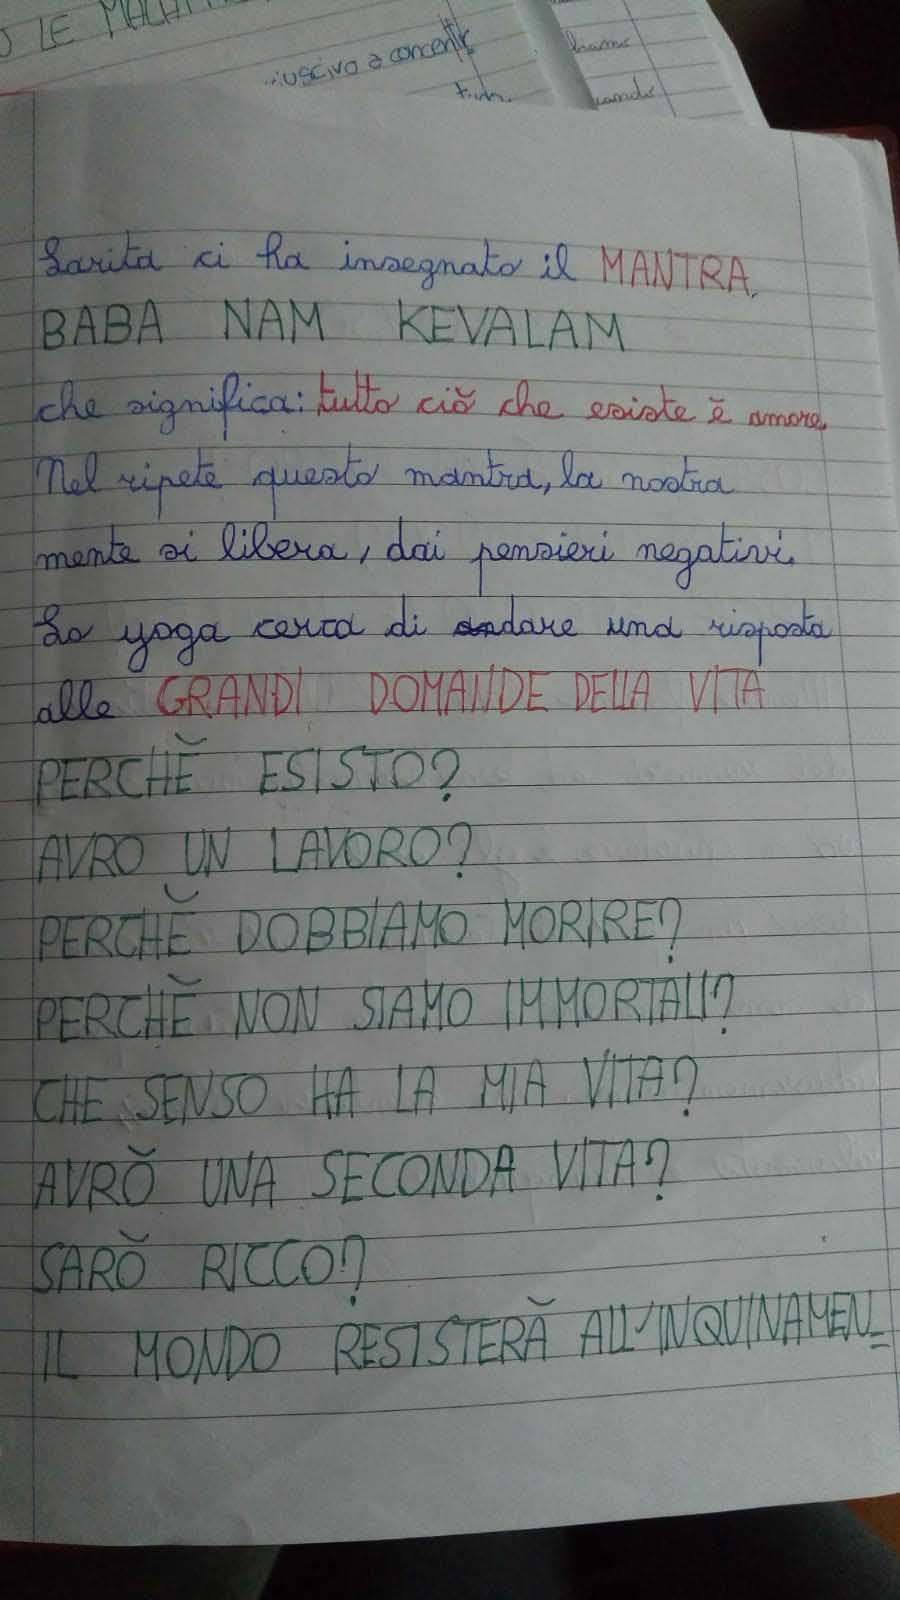 O LE MALATTI
iuscivo a concentr
hamo
Sarita ci ha insegnato il MANTRA.
BABA NAM KEVALAM
che significa: tutto ciò che esiste è amore.
Nel ripete questo mantra, la nostra
mente si libera, dai pensieri negativi.
Lo yoga cerca di dare una risposta
alle GRANDI DOMANDE DELLA VITA
PERCHĔ ESISTO?
AVRO UN LAVORO?
PERCHĔ DOBBIAMO MORIRE?
PERCHĔ NON SIAMO IMMORTALI?
CHE SENSO HA LA MIA VITA?
AVRŎ UNA SECONDA VITA?
SARŎ RICCO?
IL MONDO RESISTERĂ ALL'INQUINAMEN_